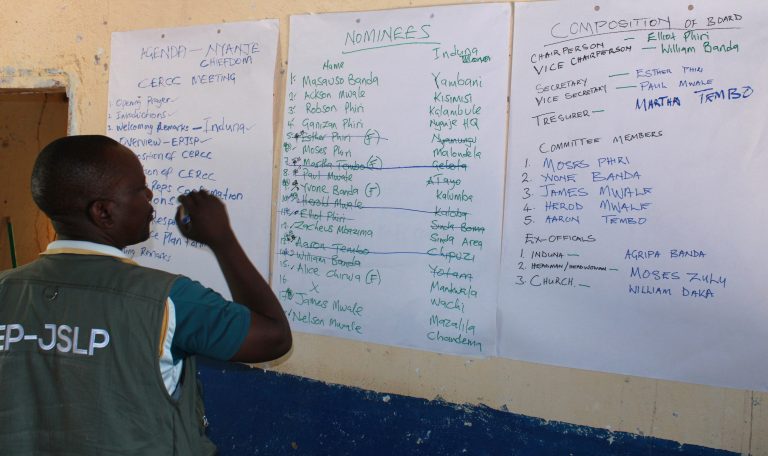 AGENDA - NYANJE
CHIEFDOM
CERCC MEETING
1. Opening Prayer
2. Introductions
3. Welcoming Remarks - Induna
Overview - EPJSP
CERCC
CERCC
Confirmation
Remarks
NOMINEES
Name Induna
1. Masauso Banda Yambani
2. Ackson Mwale Kisimisi
3. Robson Phiri Kalambule
4. Ganizan Phiri Nyanje HQ
5. Esther Phiri (F)
6. Moses Phiri Malondola
7. Martha Tembo (F)
8. Paul Mwale Tayo
9. Yvone Banda (F) Kalumba
10. Herold Mwale Kaloba
11. Elliot Phiri Sinda Boma
12. Zacheus Mbazima Sinda Area
13. Aaron Tembo Chipuzi
14. William Banda Yotam
15. Alice Chirwa (F) Mankwala
16. X Wachi
17. James Mwale Mazalila
Nelson Mwale Chandema
COMPOSITION OF BOARD
CHAIRPERSON - Elliot Phiri
VICE CHAIRPERSON - William Banda
SECRETARY - ESTHER PHIRI
VICE SECRETARY - PAUL MWALE
TRESURER - MARTHA TEMBO
COMMITTEE MEMBERS
1. MOSES PHIRI
2. YVONE BANDA
3. JAMES MWALE
4. HEROD MWALE
5. AARON TEMBO
EX-OFFICALS
1. INDUNA - AGRIPA BANDA
2. HEADMAN/HEADWOMAN - MOSES ZULU
3. CHURCH - WILLIAM DAKA
EP-JSLP